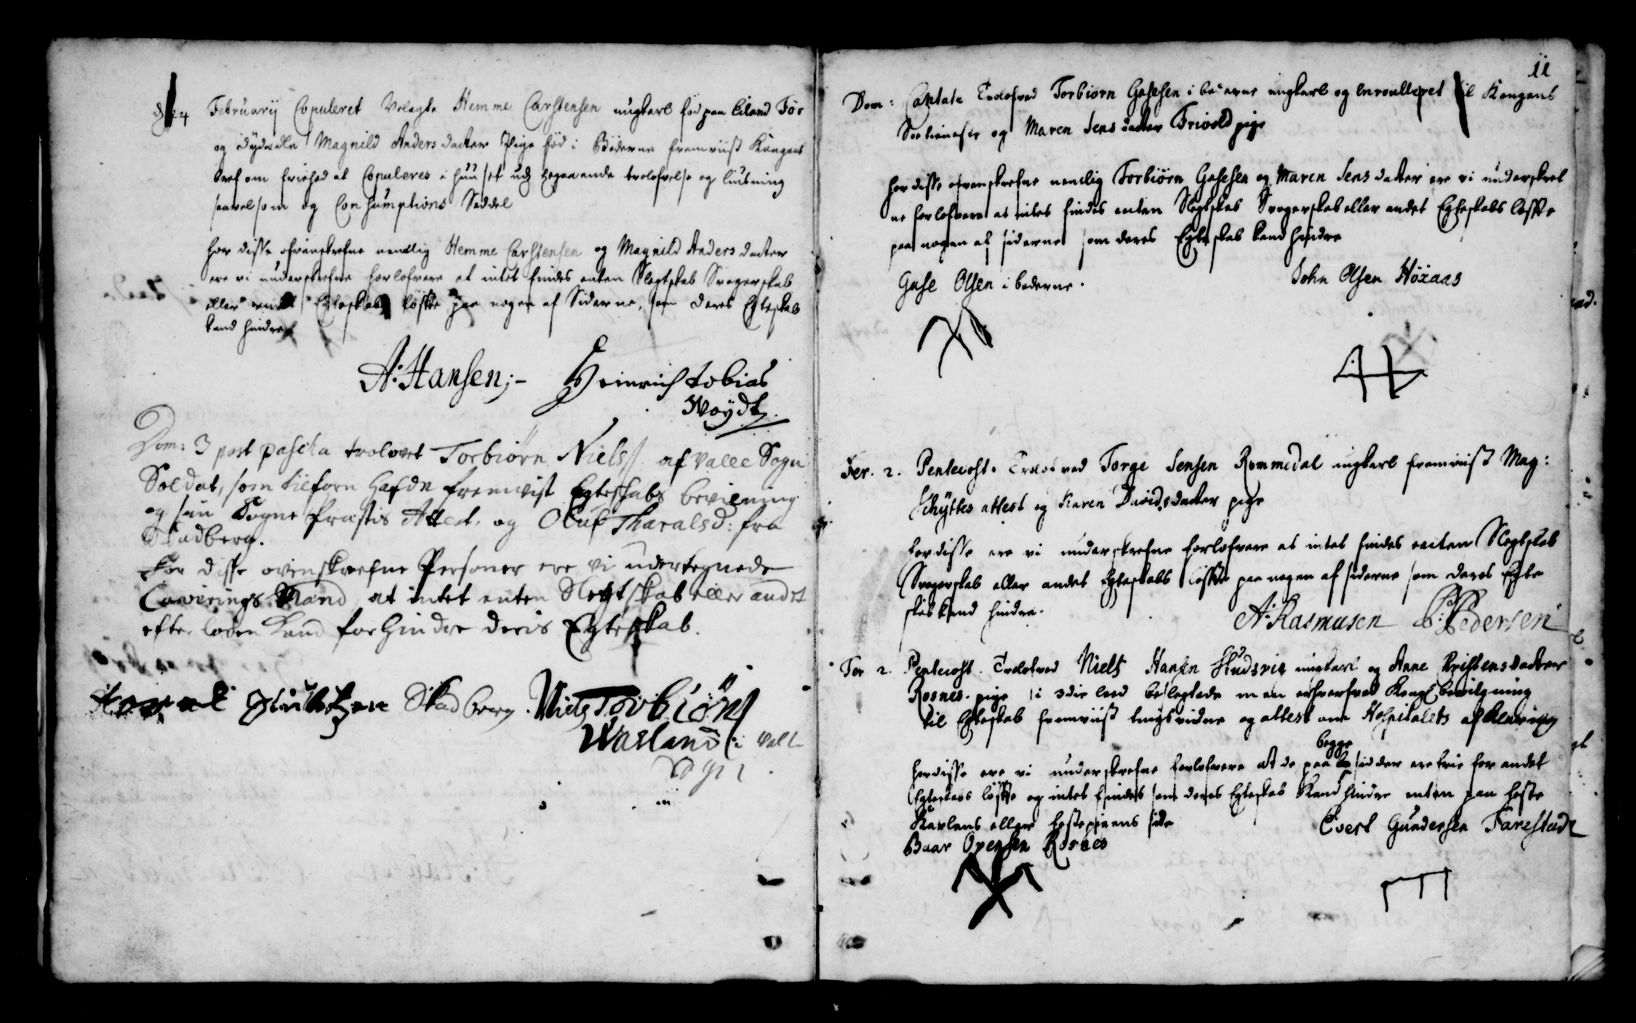 24 Februarij Copuleret Velagte Hemme Carstensen ungkarl föd paa Eiland För
og dydædle Magnild Anders daatter Pige föd i Böderne fremviist Kongens
bref om frihed at Copuleres i huuset uden foregaaende trolofvelse og liusning
saavelsom og Consumptions Seddel
for disse ofvenskrefne nemlig Hemme Carstensen og Magnild Anders daatter
ere vi underskrefne forlofvere at intet findes enten Slegtskab Svogerskab
eller andet Egteskabs löfte paa nogen af Siderne, som deres Egteskab
kand hindre
A: Hansen;- Heinrich tobias
Woydt
Dom: 3 post pascha trolovet Torbiörn Niels: af Valle Sogn
Soldat, som tilforn hafde fremvist Egteskabs bevilning
og sin Sogne Præstis Attest. og Oluf Tharalsd: fra
Skadberg.
For disse ovenskrefne Personer ere vi undertegnede
Caverings Mænd at intet enten Slegtskab eller andet
efter loven kand forhindre deris Egteskab.
Skadberg. Niels Torbiörns
Warland i Valle
Sogn
11
Dom: Cantate Trolofved Torbiorn Gosesen i böderne ungkarl og enroulleret til Kongens
Söetieneste og Maren Jens daatter Trivold pige
for disse ofvenskrefne nemlig Torbiörn Gosesen og Maren Jens daatter ere vi underskref
ne forlofvere at intet findes enten Slegtskab Svogerskab eller andet Egteskabs löfte
paa nogen af siderne som deres Egteskab kand hindre
Gose Olsen i böderne. John Olsen Höraas
Fer. 2. Pentecost. Trolofved Torge Jensen Rommedal ungkarl fremviist Mag:
Schyttes attest og Karen Davids daatter pige
for disse ere vi underskrefne forlofvere at intet findes enten Slegtskab
Svogerskab eller andet Egteskabs löfte paa nogen af siderne som deres Egte
skab kand hindre.
A: Rasmusen P: Pedersen
Fer 2. Pentecost. Trolofved Niels Hansen Studsvig ungkarl og Anne Kristens daatter
Rosnes pige i 3die leed beslegtede men erhverfved Kongl bevilgning
til Egteskab fremviist tingsvidne og attest om Hospitalets afklaring
begge
for disse ere vi underskrefne forlofvere At de paa sidder ere frie for andet
Egteskabs löfte og intet findes som deres Egteskab kand hindre enten paa feste
Karlens eller festepigens side Evert Gundersen Farestad
Baar Ovensen Rosnes